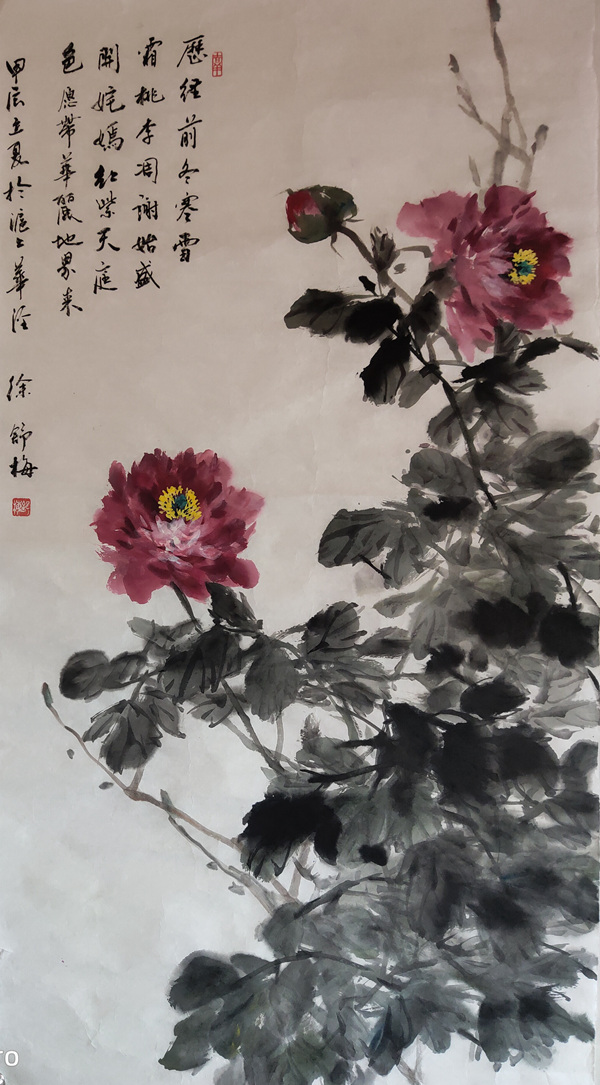 歷经前冬寒雪
霜桃李凋謝始盛
開姹嫣红紫天庭
色愿带華麗地界来
甲辰立夏於滬上華泾
徐節梅